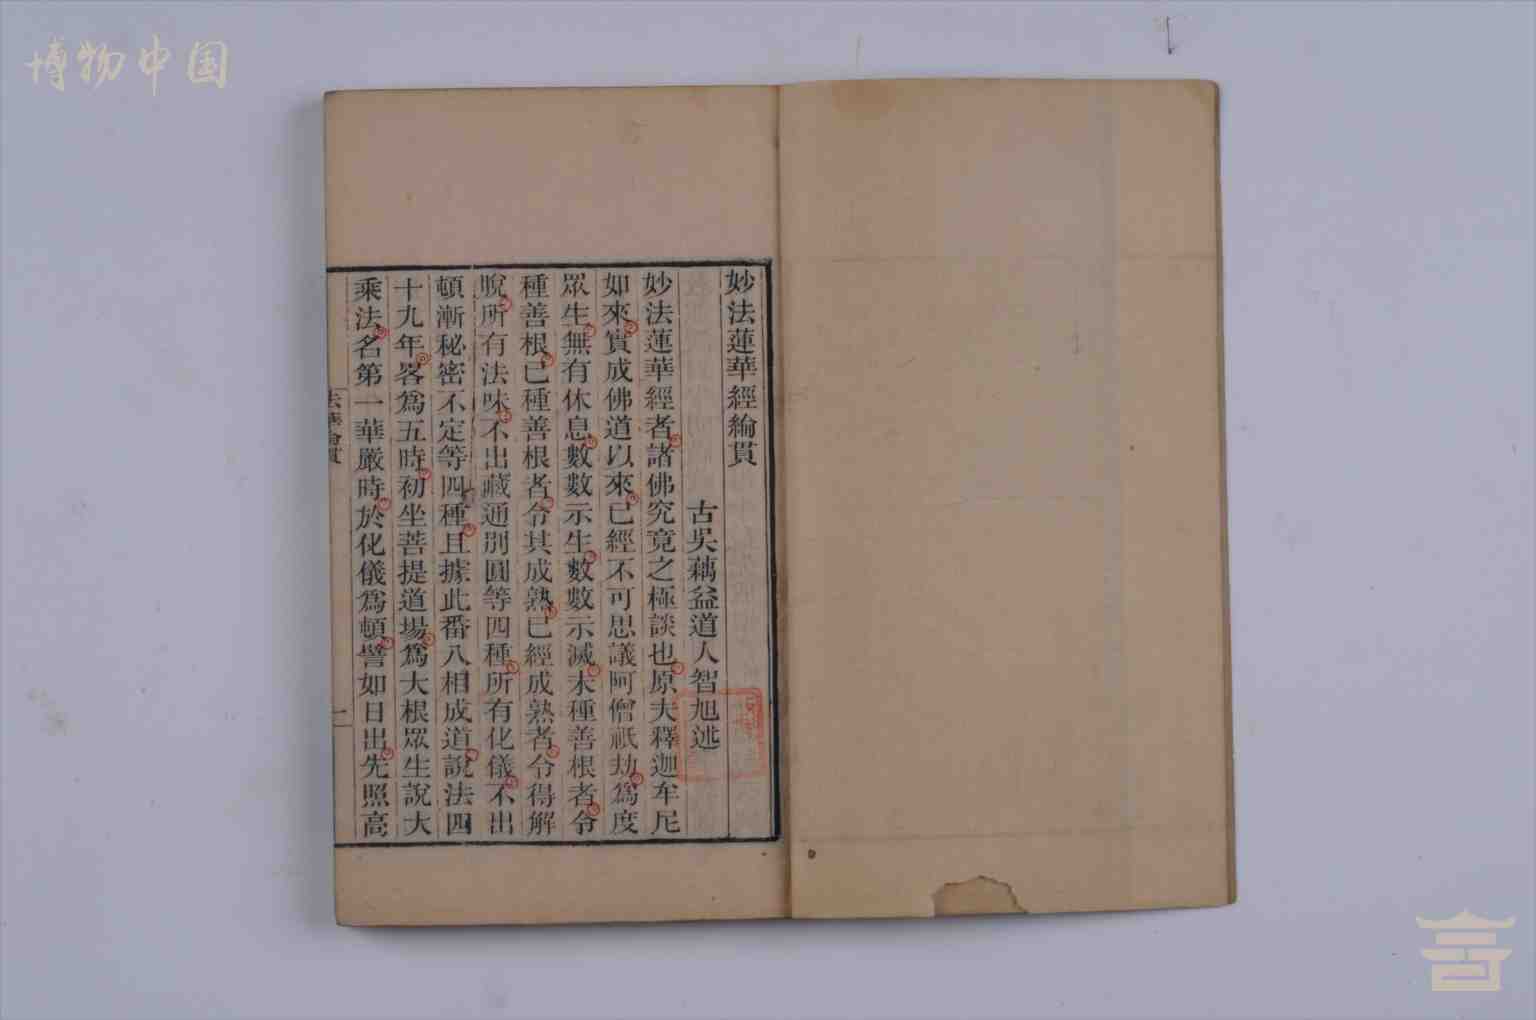 博物中国
妙法蓮華經綸貫
古吳蕅益道人智旭述
妙法蓮華經者諸佛究竟之極談也原夫釋迦牟尼
如來實成佛道以來已經不可思議阿僧祇劫爲度
眾生無有休息數數示生數數示滅未種善根者令
種善根已種善根者令其成熟已經成熟者令得解
脫所有法味不出藏通別圓等四種所有化儀不出
頓漸秘密不定等四種且據此番八相成道說法四
十九年畧爲五時初坐菩提道場爲大根眾生說大
乘法名第一華嚴時於化儀爲頓譬如日出先照高
法華綸貫
一